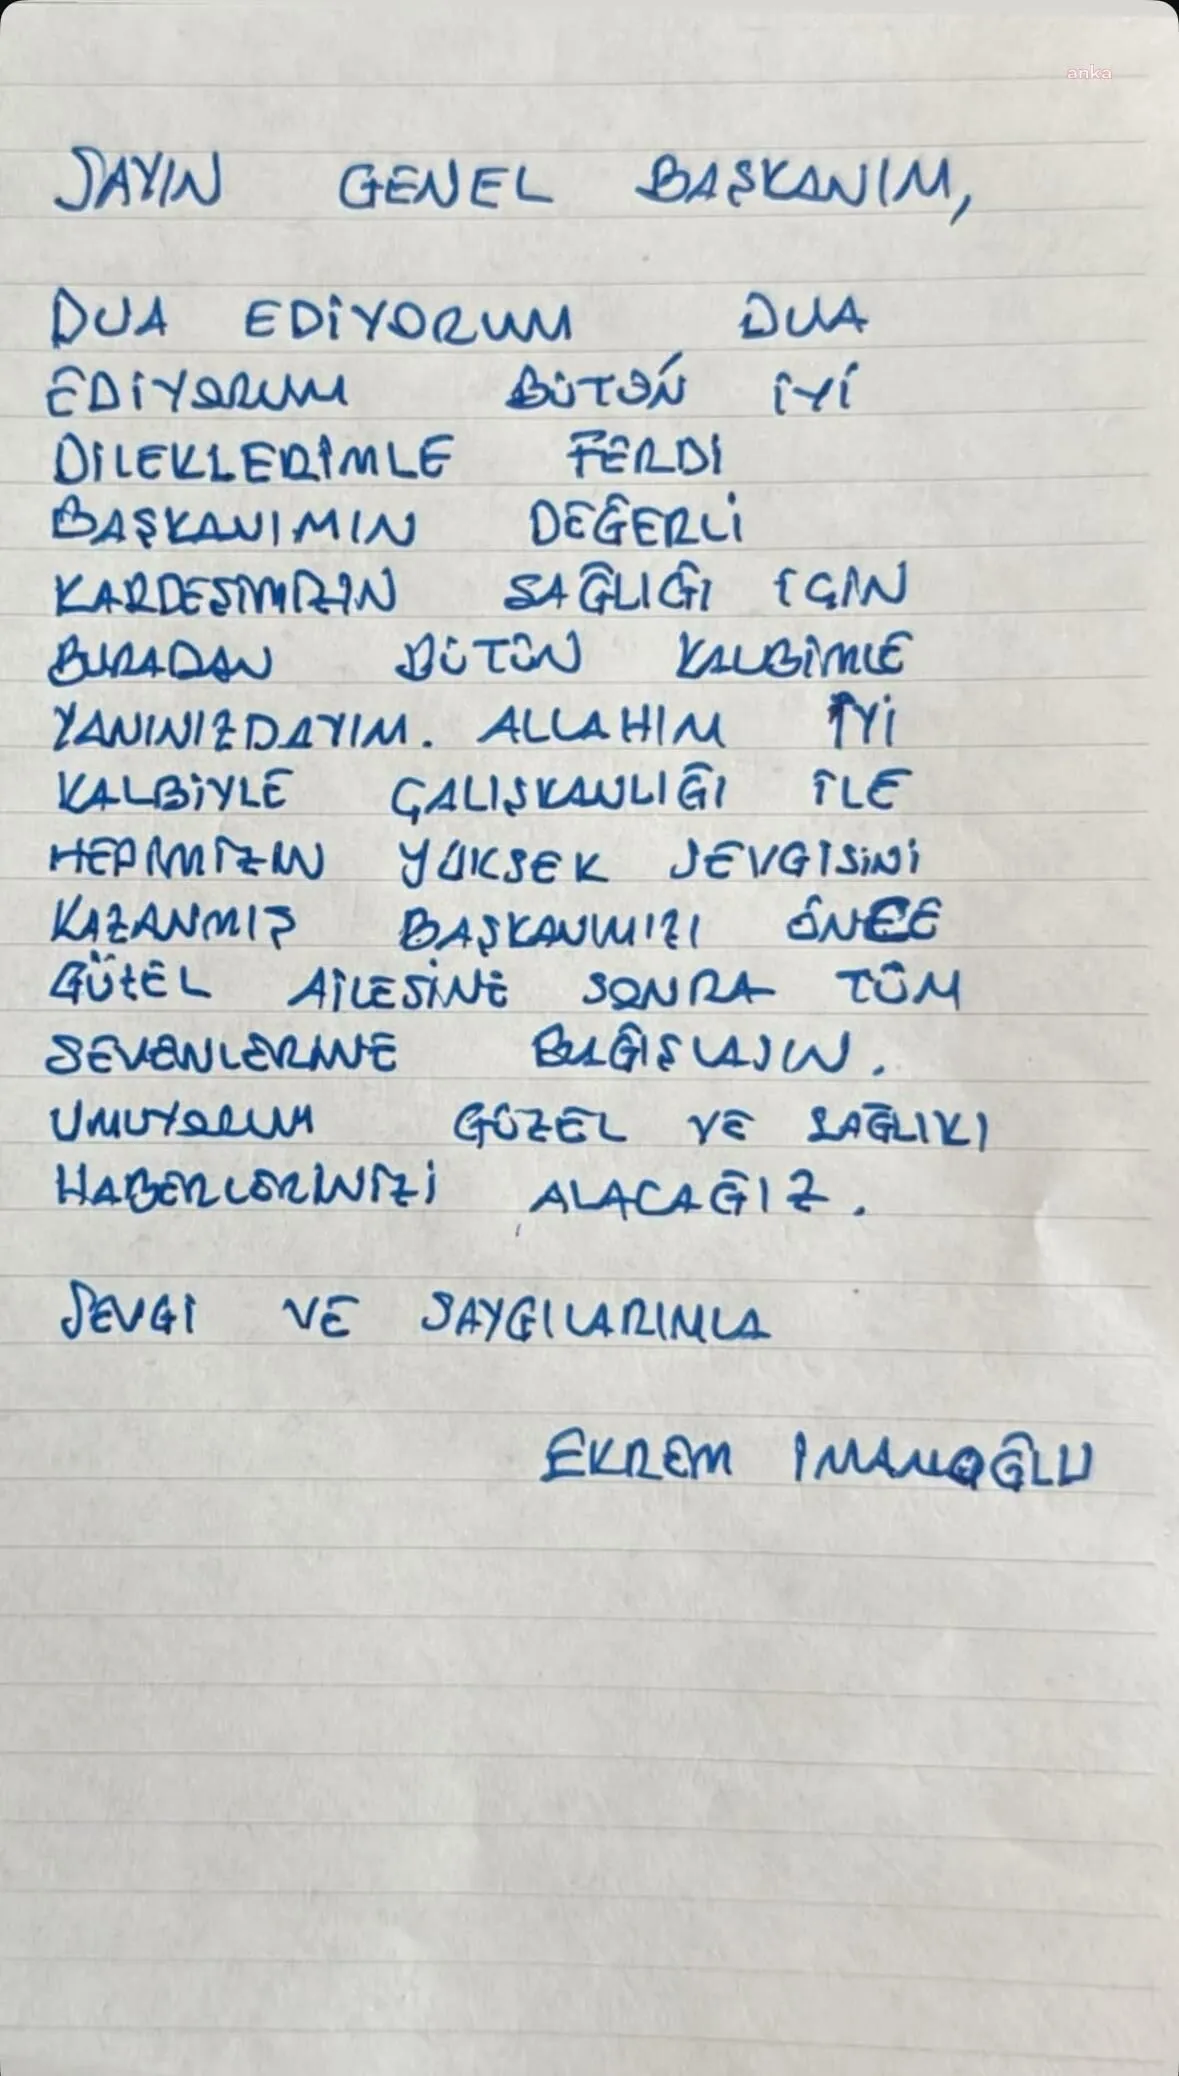 anka
SAYIN GENEL BAŞKANIM,
DUA EDİYORUM DUA
EDİYORUM BÜTÜN İYİ
DİLEKLERİMLE FERDİ
BAŞKANIMIN DEĞERLİ
KARDEŞİMİZİN SAĞLIĞI İÇİN
BURADAN BÜTÜN KALBİMLE
YANINIZDAYIM. ALLAHIM İYİ
KALBİYLE ÇALIŞKANLIĞI İLE
HEPİMİZİN YÜKSEK SEVGİSİNİ
KAZANMIŞ BAŞKANIMIZI ÖNCE
GÜZEL AİLESİNE SONRA TÜM
SEVENLERİNE BAĞIŞLASIN.
UMUYORUM GÜZEL VE SAĞLIKI
HABERLERİNİZİ ALACAĞIZ.
SEVGİ VE SAYGILARIMLA
EKREM İMAMOĞLU